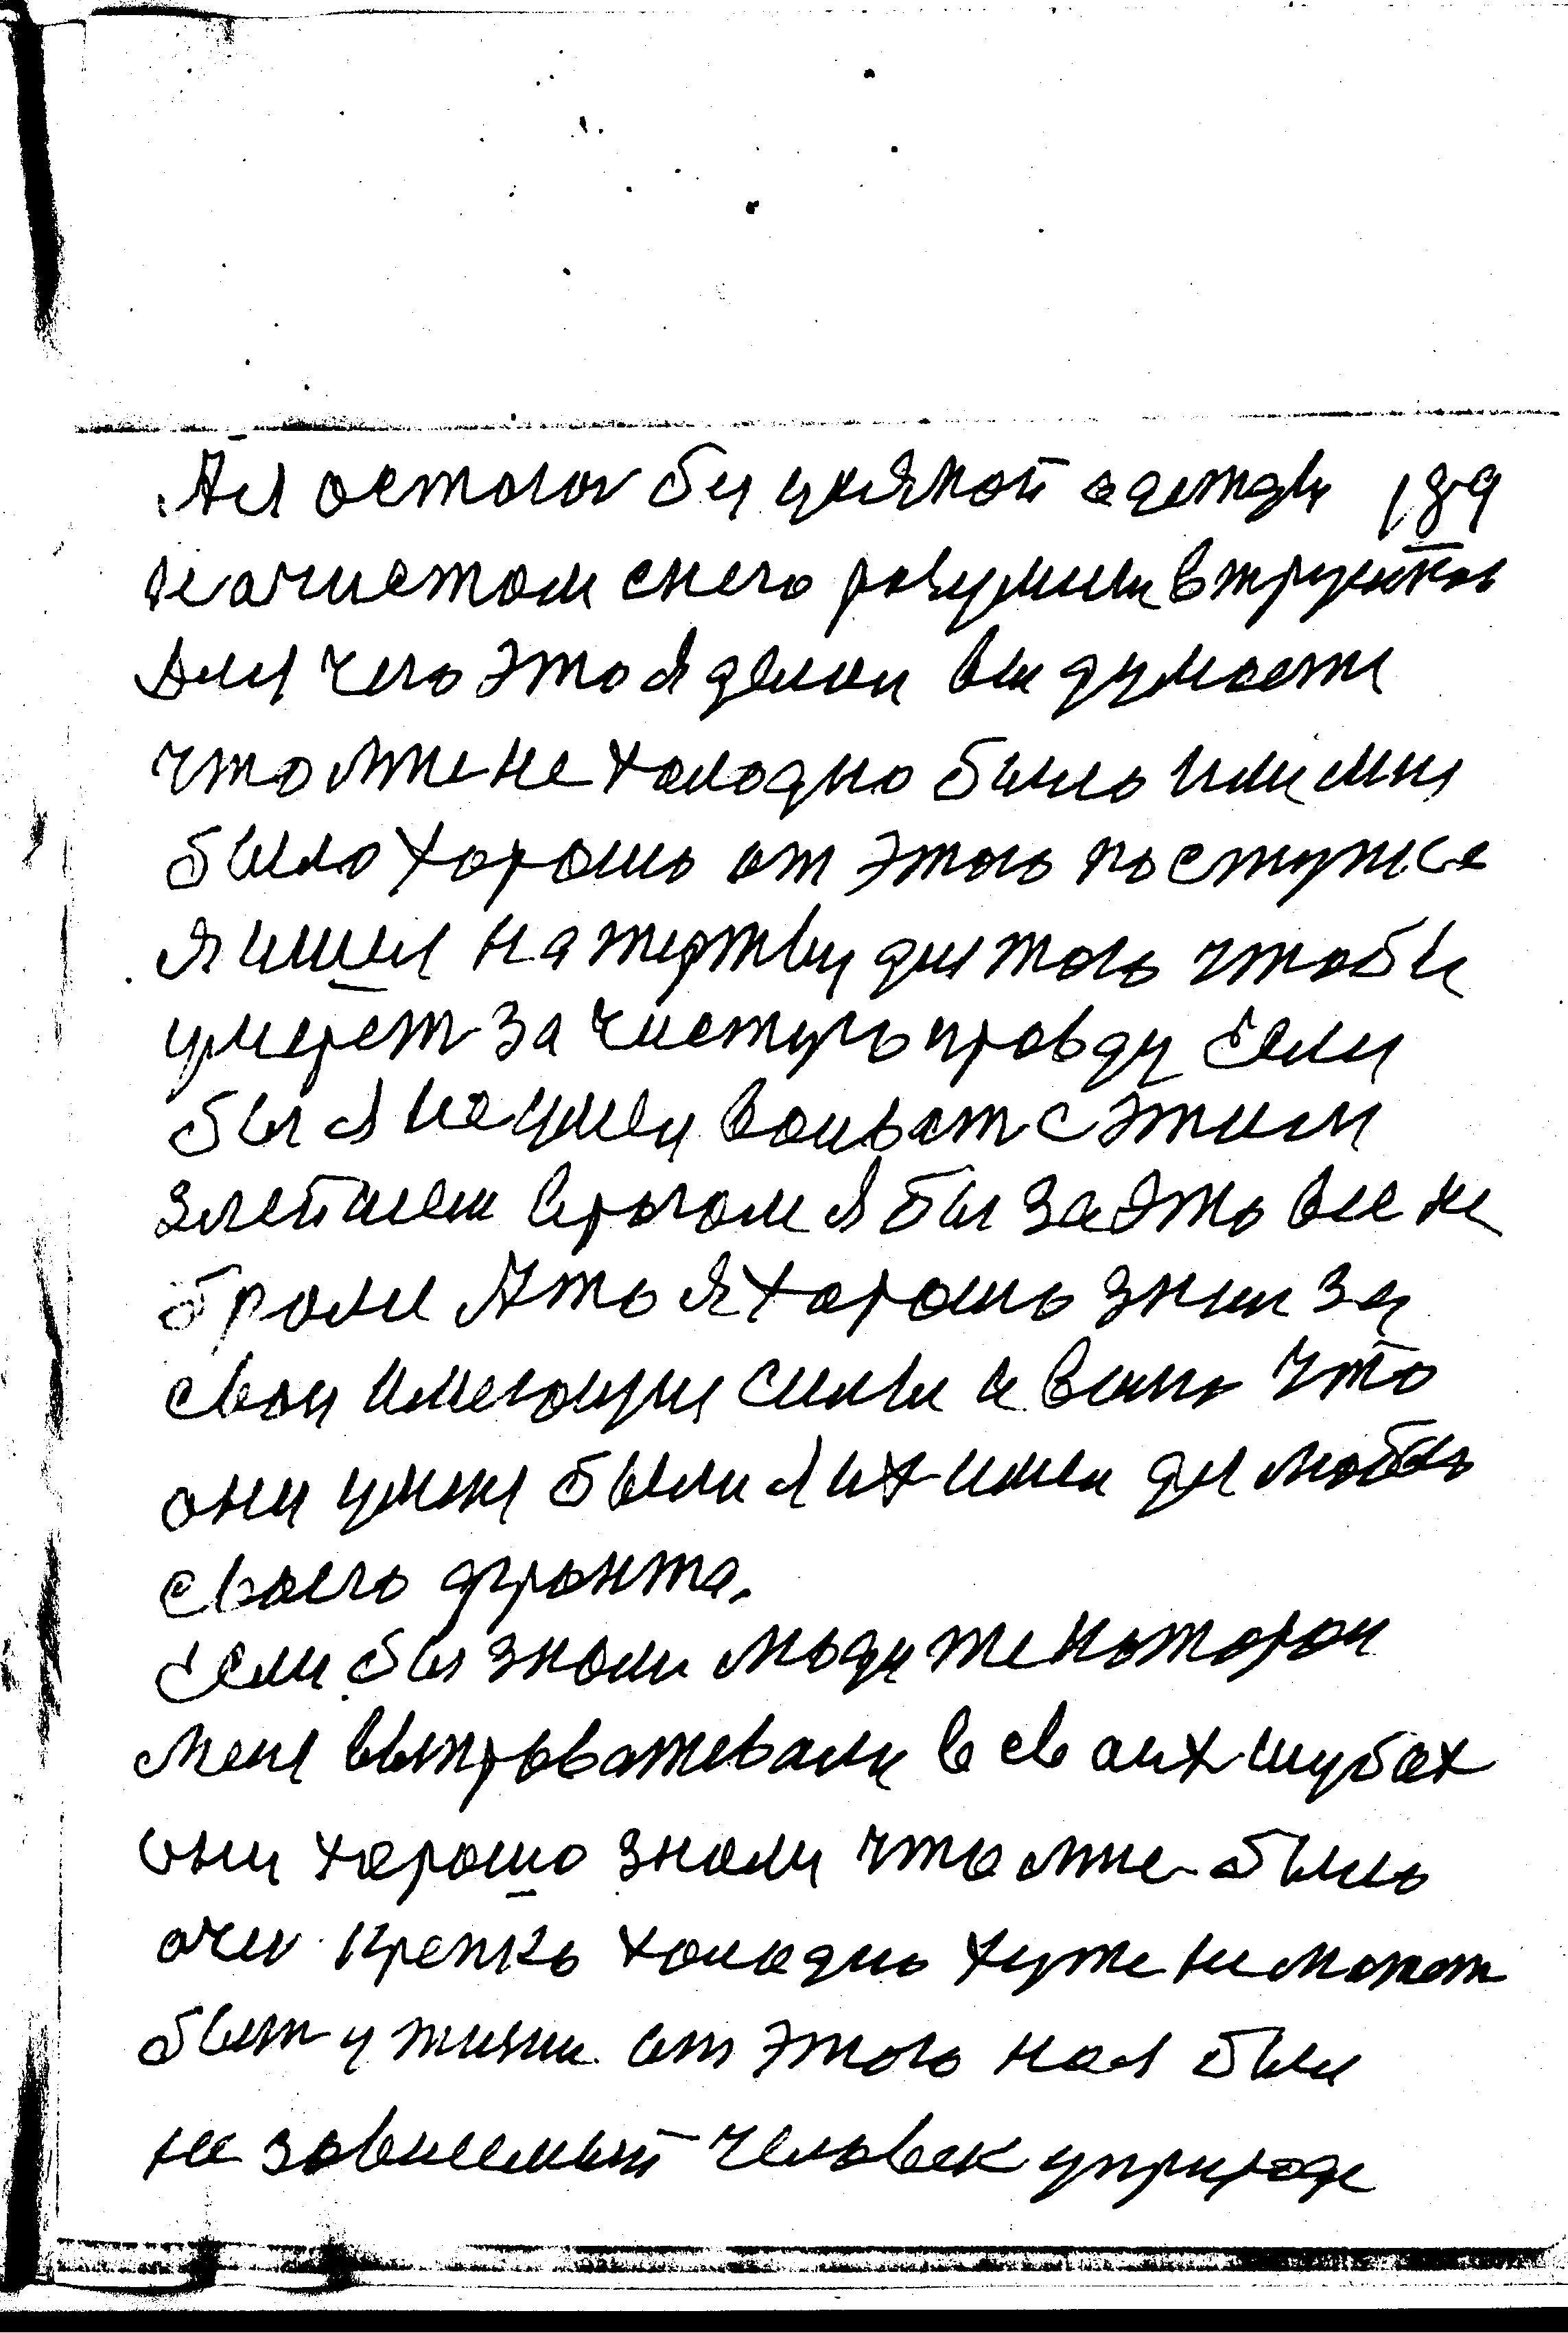 А я остался бы усякой одежды 189
не очистом снего разумнш в трусиках
для чего это я делаи вы думаети
что мне не холодно было или мня
было хорошо от этого поступка
я ишил на жертву для того чтобы
умерет за чистую правду если
бы я не умеи воиват с этим
злейшем врагом я бы за это все не
брался А то я хорошо знаи за
свои имеющия силы и вино что
они умня были я их имеи для любого
своего фронта.
если бы знали люди же которои
меня выпроважевали в своих шубах
они хорошо знали что мне было
очен крепко холодно хуже не может
быт у жизни от этого ноя был
не зависемый человек уприроде